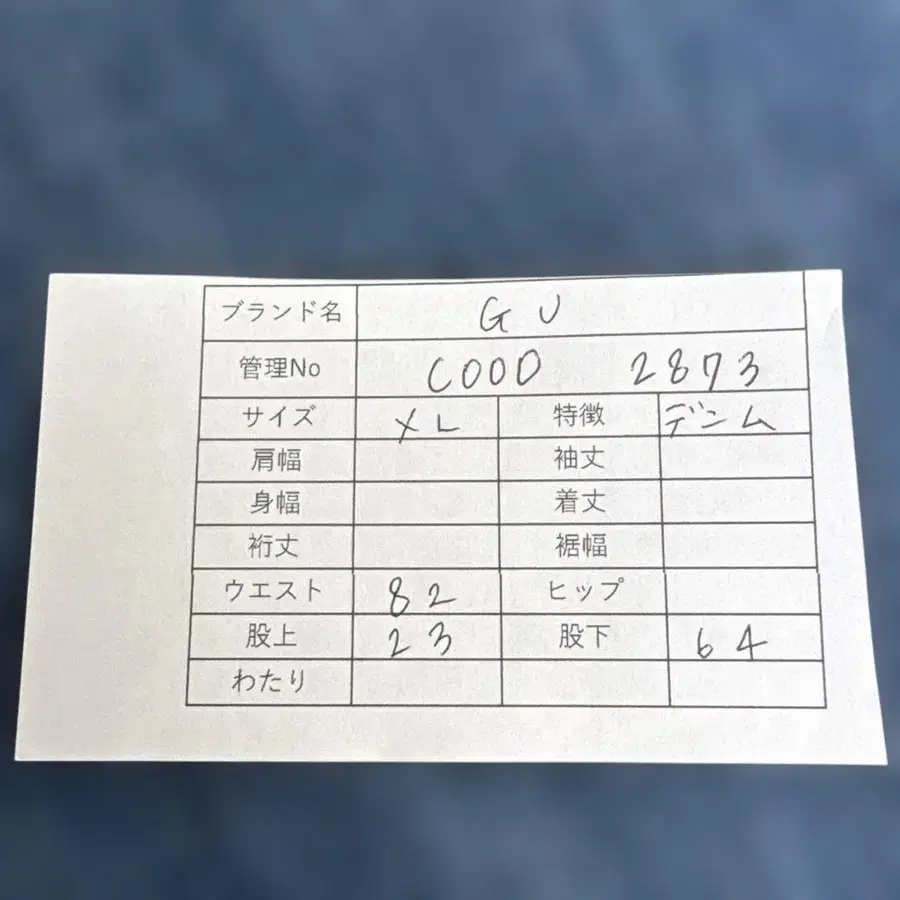 ブランド名 GU
管理No C000 2873
サイズ XL 特徴 デニム
肩幅 袖丈
身幅 着丈
裄丈 裾幅
ウエスト 82 ヒップ
股上 23 股下 64
わたり